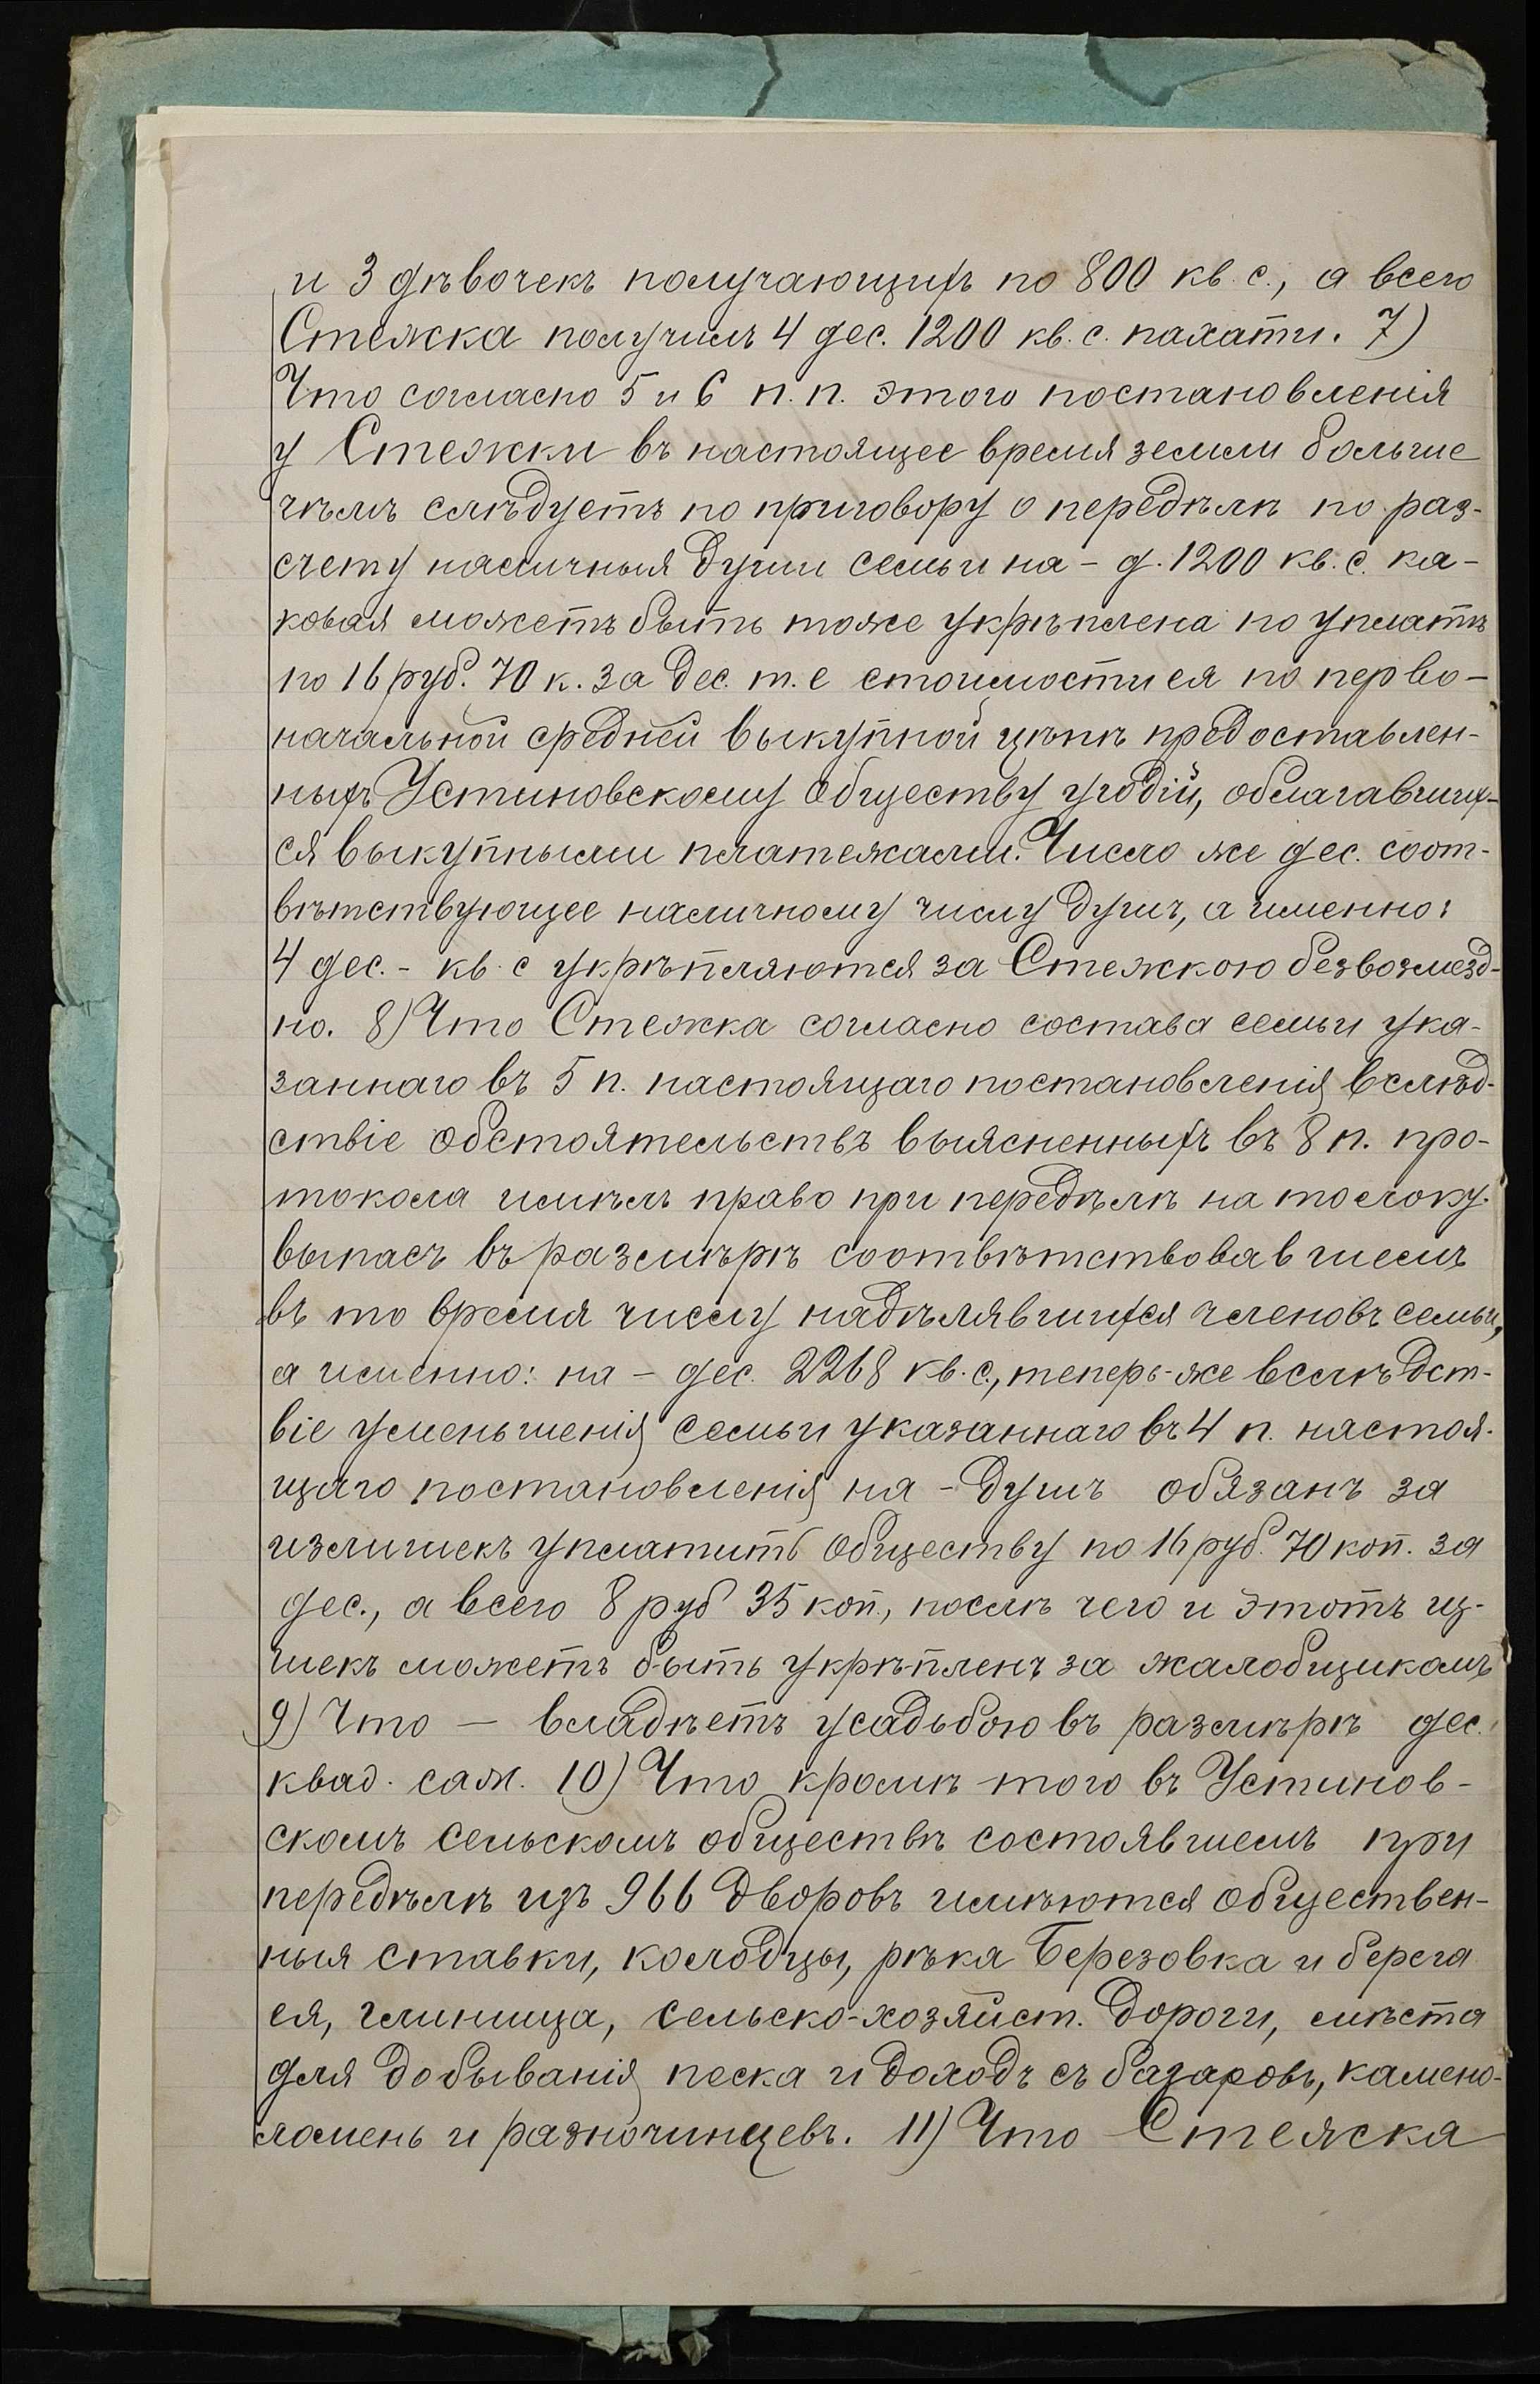 и 3 дѣвочекъ получающихъ по 800 кв. с., а всего
Стежка получилъ 4 дес. 1200 кв. с. пахати. 7)
Что согласно 5 и 6 п.п. этого постановленія
у Стежки въ настоящее время земли больше
чѣмъ слѣдуетъ по приговору о передѣлѣ по раз-
счету наличныя души семьи на - д. 1200 кв. с. ка-
ковая можетъ быть тоже укрѣплена по уплатѣ
по 16 руб. 70 к. за дес. т. е стоимости ея по перво-
начальной средней выкупной цѣнѣ предоставлен-
ныхъ Устиновскому обществу угодій, облагавших-
ся выкупными платежами. Число же дес. соот-
вѣтствующее наличному числу душъ, а именно:
4 дес. - кв. с укрѣпляются за Стежкою безвозмезд-
но. 8) Что Стежка согласно состава семьи ука-
заннаго въ 5 п. настоящаго постановленія вслѣд-
ствіе обстоятельствъ выясненныхъ въ 8 п. про-
токола имѣлъ право при передѣлѣ на толоку.
выпасъ въ размѣрѣ соотвѣтствовавшемъ
въ то время числу надѣлявшихся членовъ семьи,
а именно: на - дес. 2268 кв. с., теперь-же вслѣдст-
віе уменьшенія семьи указаннаго въ 4 п. настоя-
щаго постановленія на - душъ обязанъ за
излишекъ уплатить обществу по 16 руб. 70 коп. за
дес., а всего 8 руб 35 коп., послѣ чего и этотъ из-
шекъ можетъ быть укрѣпленъ за жалобщикомъ
9) Что — владѣетъ усадьбою въ размѣрѣ дес.
квад. саж. 10) Что кромѣ того въ Устинов-
скомъ сельскомъ обществѣ состоявшемъ при
передѣлѣ изъ 966 дворовъ имѣются обществен-
ныя ставки, колодцы, рѣка Березовка и берега
ея, глинища, сельско-хозяйст. дороги, мѣста
для добыванія песка и доходъ съ базаровъ, камено-
ломень и разночинцевъ. 11) Что Стежка